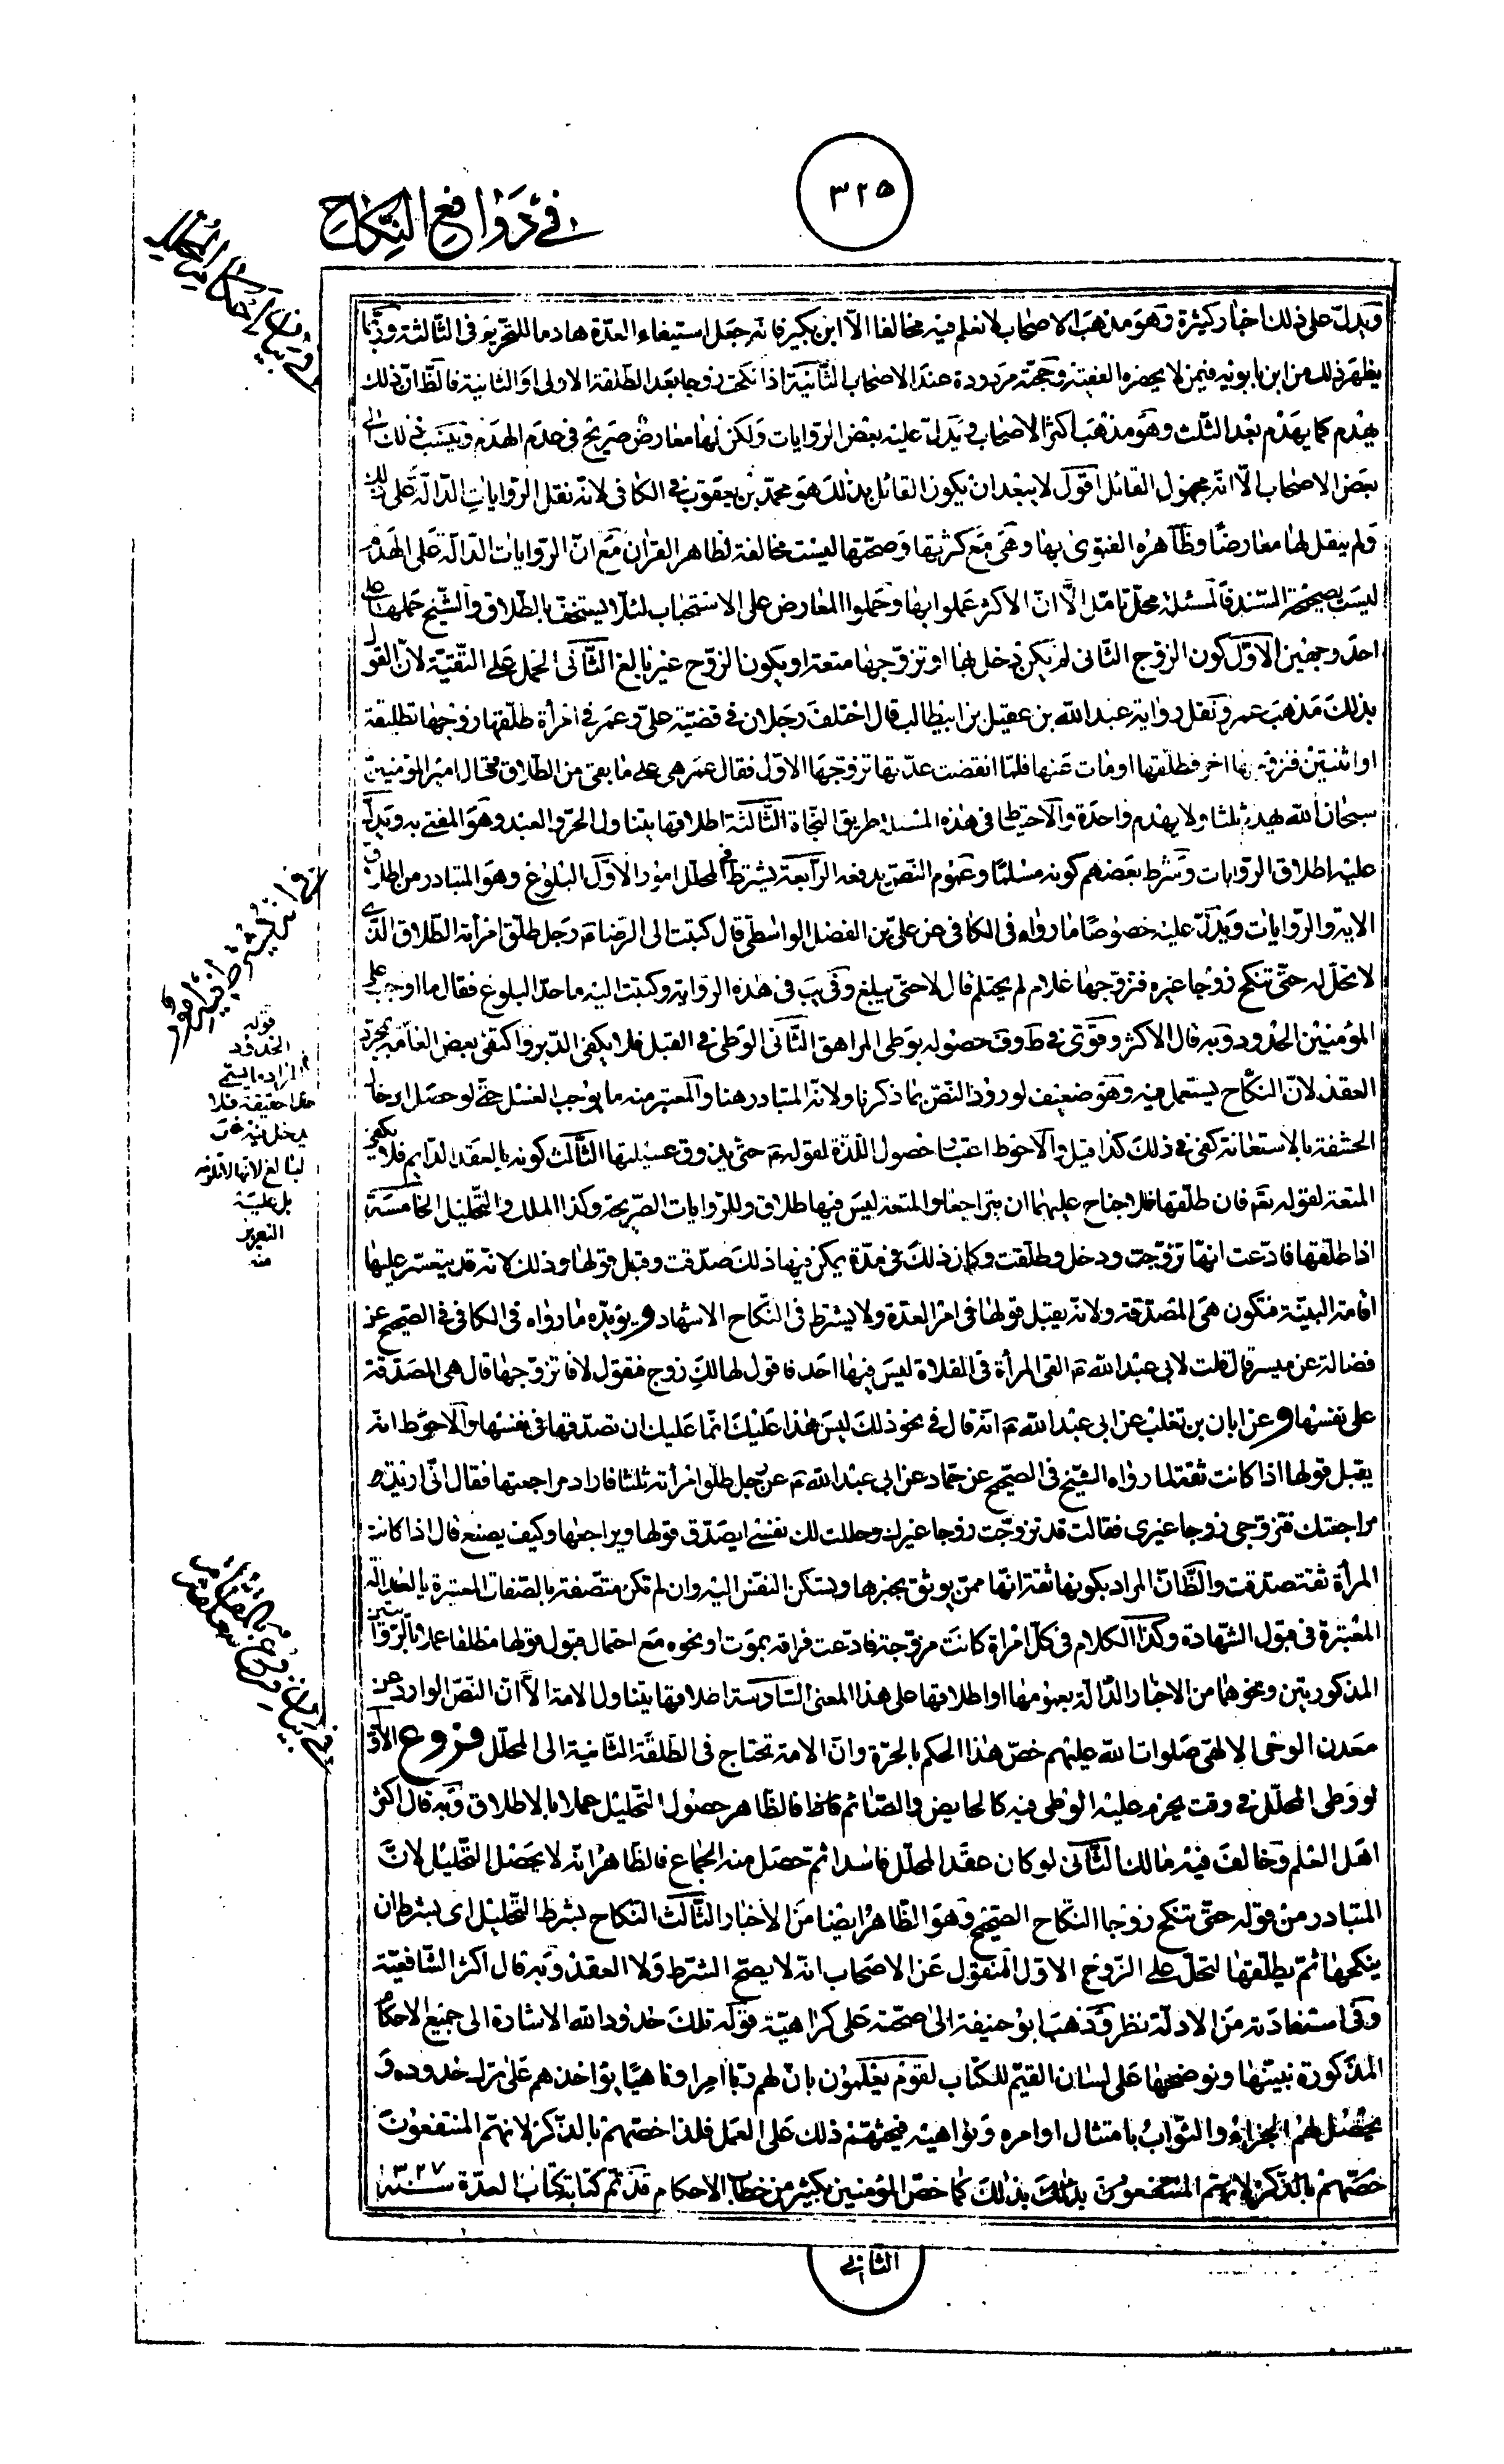 ٣٢٥
في دوافع النكاح
ويدل على ذلك اخبار كثيرة وهو مذهب الاصحاب لا نعلم فيه مخالفا الا ابن بكير فانه جعل استيفاء العدة هادما للتحريم في الثالثة وربما
يظهر ذلك من ابن بابويه فيمن لا يحضره الفقيه وحجته مردودة عند الاصحاب الثانية اذا نكحت زوجا بعد الطلقة الاولى او الثانية فالظ ان ذلك
يهدم كما يهدم بعد الثلث وهو مذهب اكثر الاصحاب ويدل عليه بعض الروايات ولكن لها معارض صريح في عدم الهدم وينسب ذلك الى
بعض الاصحاب الا انه مجهول القائل اقول لا يبعد ان يكون القائل بذلك هو محمد بن يعقوب في الكافي لانه نقل الروايات الدالة على ذلك
ولم ينقل لها معارضا وظاهره الفتوى بها وهي مع كثرتها وصحتها ليست مخالفة لظاهر القران مع ان الروايات الدالة على الهدم
ليست بصحيحة السند فالمسئلة محل تامل الا ان الاكثر عملوا بها وحملوا المعارض على الاستحباب لئلا يستخف بالطلاق والشيخ حملها على
احد وجهين الاول كون الزوج الثاني لم يكن دخل بها او تزوجها متعة او يكون الزوج غير بالغ الثاني الحمل على التقية لان القول
بذلك مذهب عمر ونقل رواية عبد الله بن عقيل بن ابيطالب قال اختلف رجلان في قضية علي وعمر في امرأة طلقها زوجها تطليقة
او اثنتين فتزوجها اخر فطلقها او مات عنها فلما انقضت عدتها تزوجها الاول فقال عمر هي على ما بقي من الطلاق فقال امير المؤمنين
سبحان الله يهدم ثلثا ولا يهدم واحدة والاحتياط في هذه المسئلة طريق النجاة الثالثة اطلاقها يتناول الحر والعبد وهو المفتى به ويدل
عليه اطلاق الروايات وشرط بعضهم كونه مسلما وعموم النص يدفعه الرابعة يشترط في المحلل امور الاول البلوغ وهو المتبادر من اطلاق
الاية والروايات ويدل عليه خصوصا ما رواه في الكافي عن علي بن الفضل الواسطي قال كتبت الى الرضا ع رجل طلق امرأته الطلاق الذي
لا تحل له حتى تنكح زوجا غيره فتزوجها غلام لم يحتلم قال لا حتى يبلغ وفي يب في هذه الرواية وكتبت اليه ما حد البلوغ فقال ما اوجب على
المؤمنين الحدود وبه قال الاكثر وقوى في ط وف حصوله بوطي المراهق الثاني الوطي في القبل فلا يكفي الدبر واكتفى بعض العامة بمجرد
العقد لان النكاح يستعمل فيه وهو ضعيف لورود النص بما ذكرنا ولانه المتبادر هنا والمعتبر منه ما يوجب الغسل حتى لو حصل ادخال
الحشفة بالاستعانة كفى في ذلك كذا قيل والاحوط اعتبار حصول اللذة لقوله ع حتى يذوق عسيلتها الثالث كونه بالعقد الدايم فلا يكفي
المتعة لقوله تعم فان طلقها فلا جناح عليهما ان يتراجعا والمتعة ليس فيها طلاق وللروايات الصريحة وكذا الملك والتحليل الخامسة
اذا طلقها فادعت انها تزوجت ودخل وطلقت وكان ذلك في مدة يمكن فيها ذلك صدقت وقبل قولها وذلك لانه قد يتعسر عليها
اقامة البينة فتكون هي المصدقة ولانه يقبل قولها في امر العدة ولا يشترط في النكاح الاشهاد ويؤيده ما رواه في الكافي في الصحيح عن
فضالة عن ميسر قال قلت لابي عبد الله ع القى المرأة في الفلاة ليس فيها احد فاقول لها لك زوج فتقول لا فاتزوجها قال هي المصدقة
على نفسها وعن ابان بن تغلب عن ابي عبد الله ع انه قال في نحو ذلك ليس هذا عليك انما عليك ان تصدقها في نفسها والاحوط انه
يقبل قولها اذا كانت ثقة لما رواه الشيخ في الصحيح عن حماد عن ابي عبد الله ع عن رجل طلق امرأته ثلثا فاراد مراجعتها فقال اني اريد
مراجعتك فتزوجي زوجا غيري فقالت قد تزوجت زوجا غيرك وحللت لك نفسي ايصدق قولها ويراجعها وكيف يصنع قال اذا كانت
المرأة ثقة صدقت والظ ان المراد بكونها ثقة انها ممن يوثق بخبرها ويسكن النفس اليه وان لم تكن متصفة بالصفات المعتبرة بالعدالة
المعتبرة في قبول الشهادة وكذا الكلام في كل امرأة كانت مزوجة فادعت فراقه بموت او نحوه مع احتمال قبول قولها مطلقا عملا بالروايتين
المذكورتين ونحوهما من الاخبار الدالة بعمومها او اطلاقها على هذا المعنى السادسة اطلاقها يتناول الامة الا ان النص الوارد عن
معدن الوحي الالهي صلوات الله عليهم خص هذا الحكم بالحرة وان الامة تحتاج في الطلقة الثانية الى المحلل فروع الاول
لو وطى المحلل في وقت يحرم عليه الوطي فيه كالحايض والصائم فالظاهر حصول التحليل عملا بالاطلاق وبه قال اكثر
اهل العلم وخالف فيه مالك الثاني لو كان عقد المحلل فاسدا ثم حصل منه الجماع فالظاهر انه لا يحصل التحليل لان
المتبادر من قوله حتى تنكح زوجا النكاح الصحيح وهو الظاهر ايضا من الاخبار الثالث النكاح بشرط التحليل اى بشرط ان
ينكحها ثم يطلقها لتحل على الزوج الاول المنقول عن الاصحاب انه لا يصح الشرط ولا العقد وبه قال اكثر الشافعية
وفي استفادته من الادلة نظر وذهب ابو حنيفة الى صحته على كراهية قوله تلك حدود الله الاشارة الى جميع الاحكام
المذكورة نبينها ونوضحها على لسان القيم للكتاب لقوم يعلمون بان لهم ربا امرا وناهيا يؤاخذهم على ترك حدوده و
يحصل لهم الجزاء والثواب بامتثال اوامره ونواهيه فيحثهم ذلك على العمل فلذا خصهم بالذكر لانهم المنتفعون
خصهم بالذكر لانهم المنتفعون بذلك بذلك كما خص المؤمنين بكثير من خطاب الاحكام قد تم كتابة كتاب العدة سنة ١٣٢٧
الثاني
في بيان احكام المحلل
في انه يشترط فيه امور
قوله
الحدود
المراد ما يسمى
حدا حقيقة فلا
يدخل فيه غير
البالغ لانها لا تلزمه
بل عليه
التعزير
منه